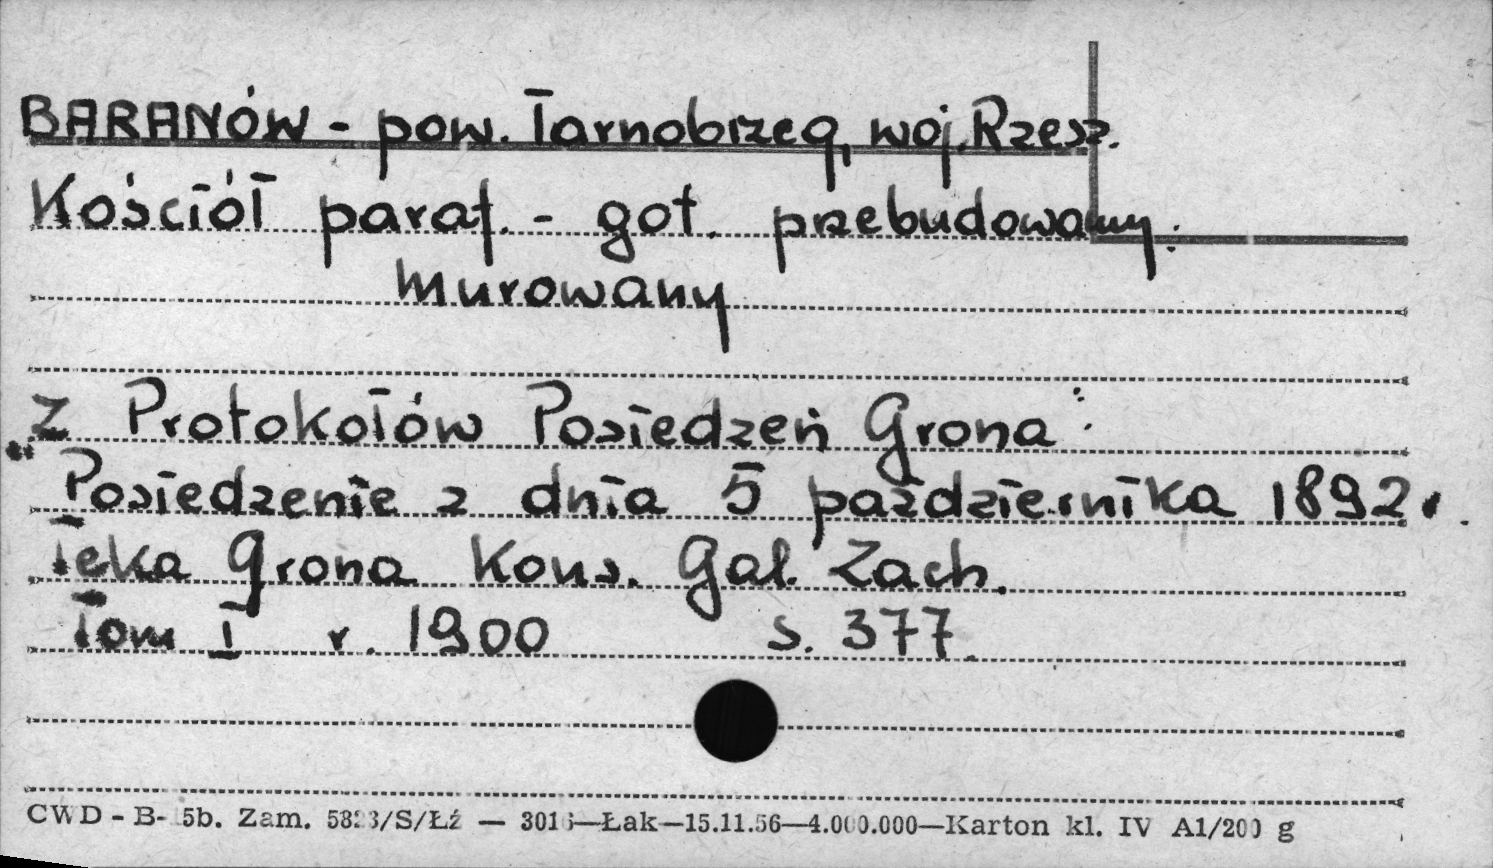 BARANÓW - pow. Tarnobrzeg, woj. Rzesz.
Kościół paraf. - got. przebudowany.
Murowany
Z Protokołów Posiedzeń Grona:
"Posiedzenie z dnia 5 października 1892 r.
Teka Grona Kons. Gal. Zach.
Tom I r. 1900 s. 377.
CWD - B- 5b. Zam. 5823/S/Łź — —Łak—15.11.56—4.000.000—Karton kl. IV A1/200 g